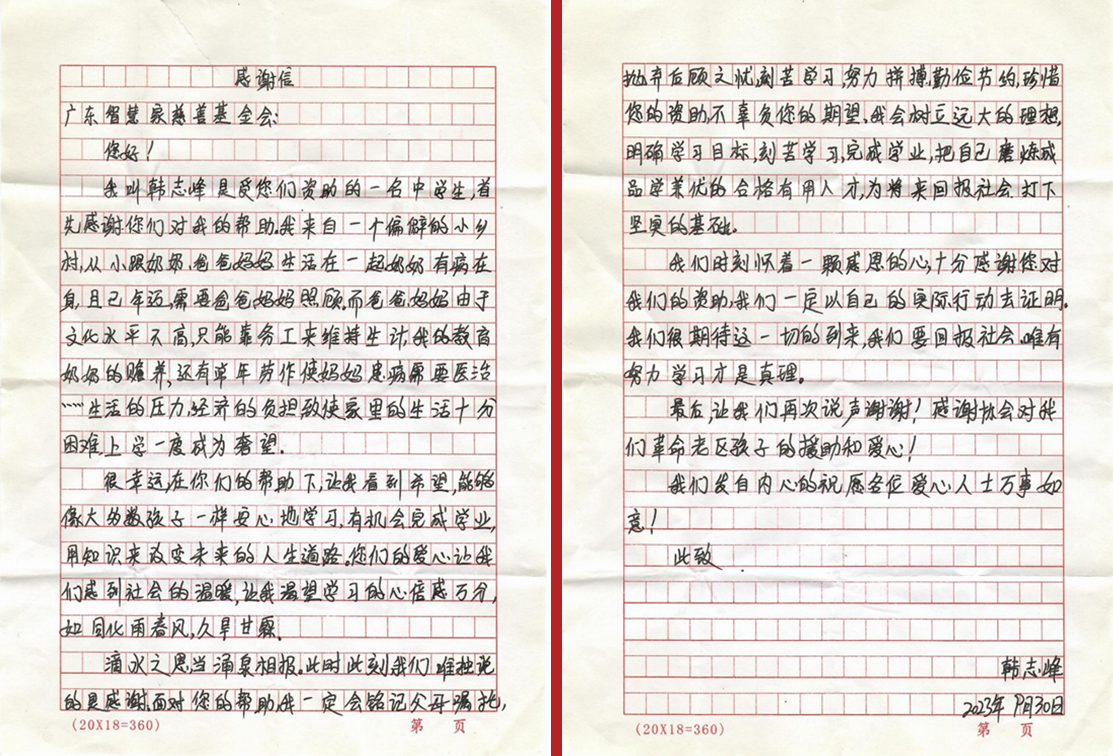 感谢信
广东智慧家慈善基金会:
您好!
我叫韩志峰是受您们资助的一名中学生,首
先感谢你们对我的帮助.我来自一个偏僻的小乡
村,从小跟奶奶、爸爸妈妈生活在一起奶奶有病在
身,且已年迈,需要爸爸妈妈照顾.而爸爸妈妈由于
文化水平不高,只能靠务工来维持生计,我的教育
奶奶的赡养,还有早年劳作使妈妈患病需要医治
……生活的压力,经济的负担致使家里的生活十分
困难,上学一度成为奢望.
很幸运,在你们的帮助下,让我看到希望,能够
像大多数孩子一样安心地学习,有机会完成学业,
用知识来改变未来的人生道路。您们的爱心让我
们感到社会的温暖,让我渴望学习的心倍感万分,
如同化雨春风,久旱甘霖.
滴水之恩当涌泉相报。此时此刻我们唯独说
的是感谢.面对您的帮助,我一定会铭记父母嘱托,
(20X18=360)
第 页
抛弃后顾之忧,刻苦学习,努力拼搏,勤俭节约,珍惜
您的资助,不辜负您的期望.我会树立远大的理想,
明确学习目标,刻苦学习,完成学业,把自己磨炼成
品学兼优的合格有用人才,为将来回报社会打下
坚实的基础。
我们时刻怀着一颗感恩的心,十分感谢您对
我们的资助,我们一定以自己的实际行动去证明。
我们很期待这一切的到来,我们要回报社会.唯有
努力学习才是真理。
最后,让我们再次说声谢谢!感谢协会对我
们革命老区孩子的援助和爱心!
我们发自内心的祝愿各位爱心人士万事如
意!
此致
韩志峰
2023年9月30日
(20X18=360)
第 页